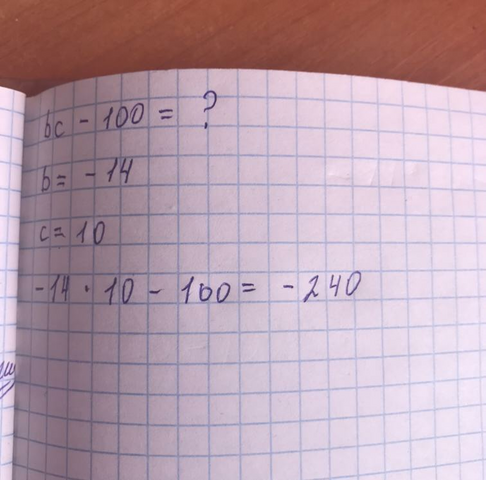 bc - 100 = ?
b = - 14
c = 10
-14 · 10 - 100 = - 240